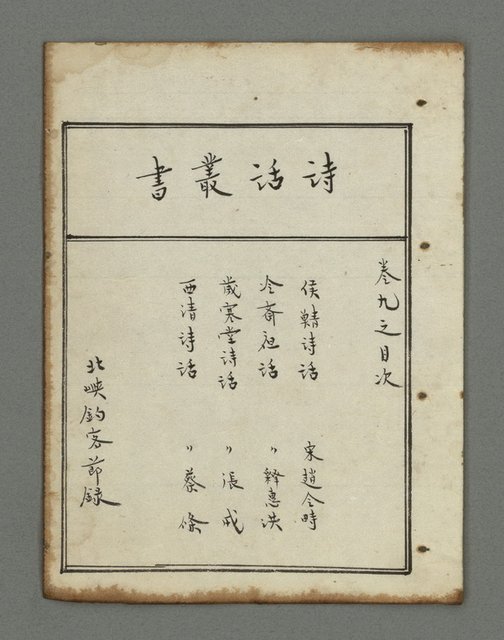 詩話叢書
卷九之目次
侯鯖詩話 宋趙令畤
冷斎夜話 〃釋惠洪
歲寒堂詩話 〃張戒
西清詩話 〃蔡絛
北峽釣客節録